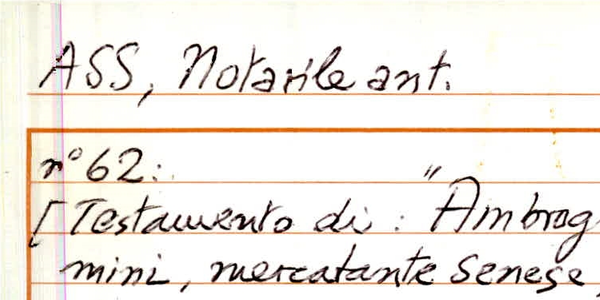 ASS, Notarile ant.
n° 62:
[Testamento di: "Ambrog
mini, mercatante senese,